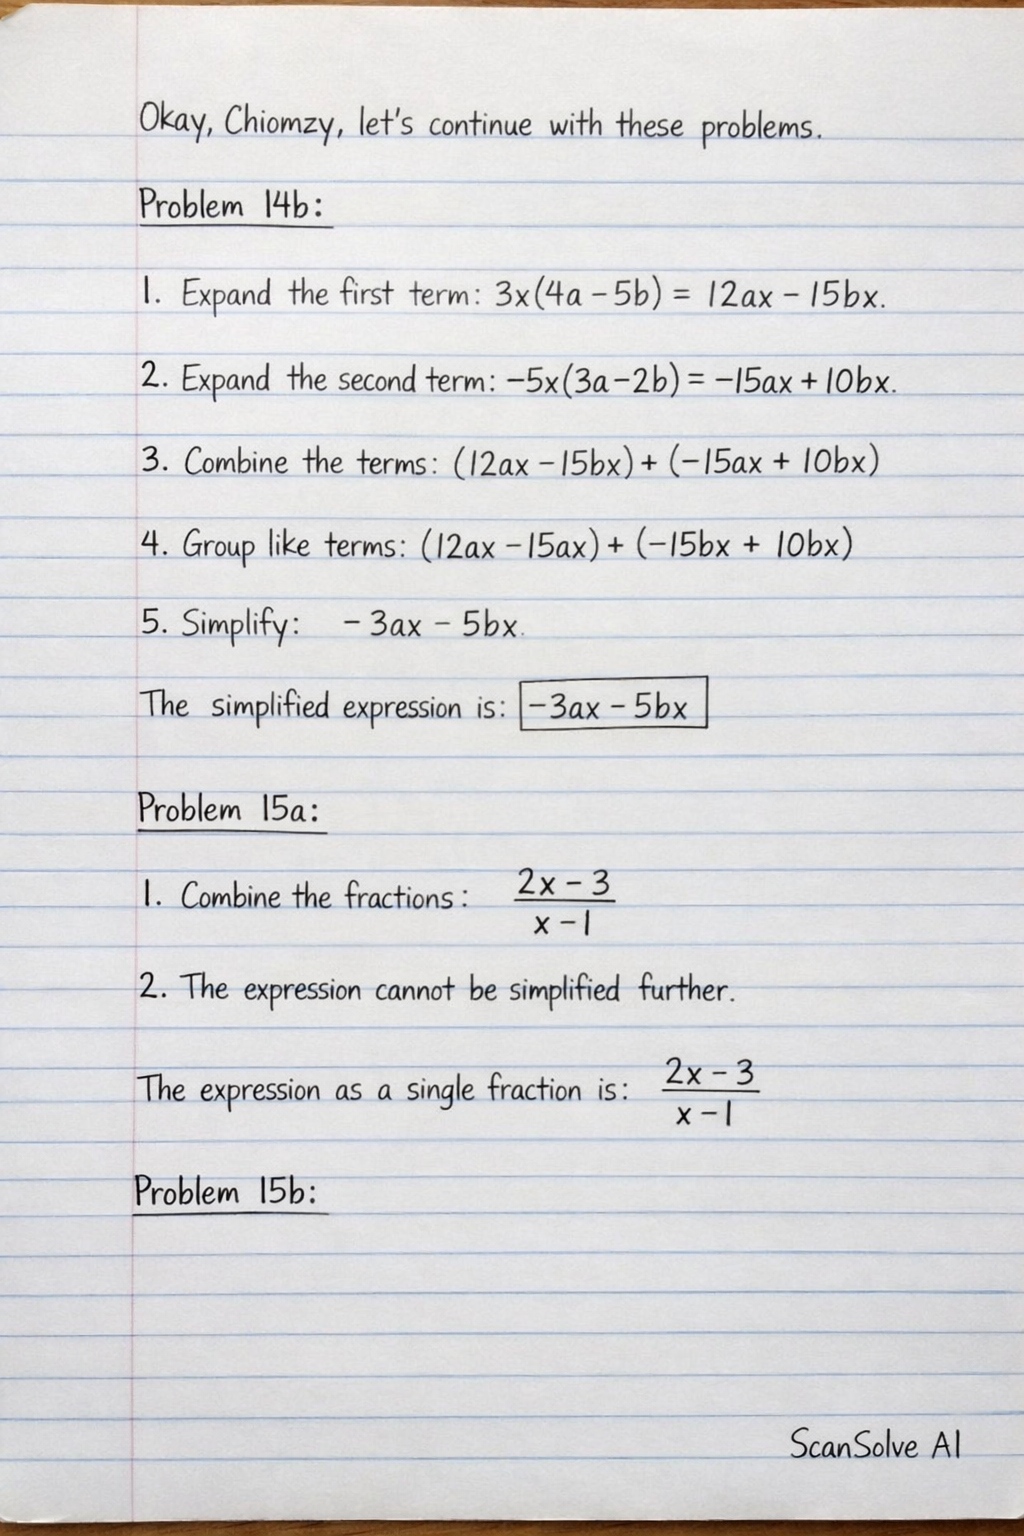 Okay, Chiomzy, let's continue with these problems.
Problem 14b:
1. Expand the first term: 3x(4a – 5b) = 12ax – 15bx.
2. Expand the second term: –5x(3a–2b) = –15ax + 10bx.
3. Combine the terms: (12ax – 15bx) + (–15ax + 10bx)
4. Group like terms: (12ax – 15ax) + (–15bx + 10bx)
5. Simplify: – 3ax – 5bx.
The simplified expression is: –3ax – 5bx
Problem 15a:
1. Combine the fractions: 2x – 3
x – 1
2. The expression cannot be simplified further.
The expression as a single fraction is: 2x – 3
x – 1
Problem 15b:
ScanSolve AI